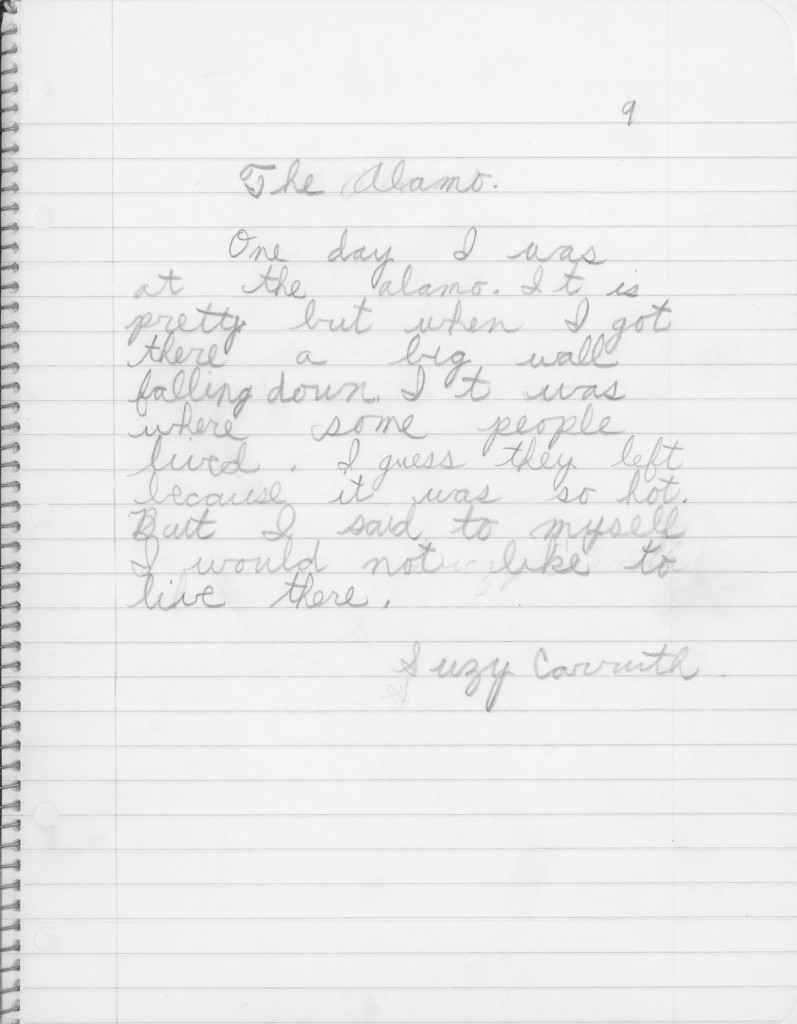 9
The Alamo.
One day I was
at the alamo. It is
pretty but when I got
there a big wall
falling down. It was
where some people
lived. I guess they left
because it was so hot.
But I said to myself
I would not like to
live there.
Suzy Carruth